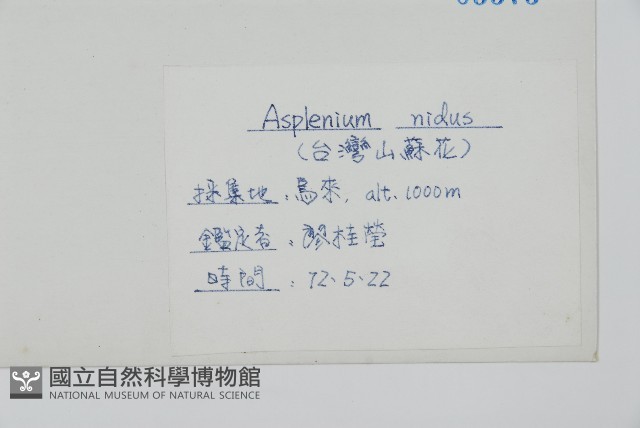 Asplenium nidus
(台灣山蘇花)
採集地：烏來, alt. 1000m
鑑定者：廖桂瑩
時間：72.5.22
國立自然科學博物館
NATIONAL MUSEUM OF NATURAL SCIENCE